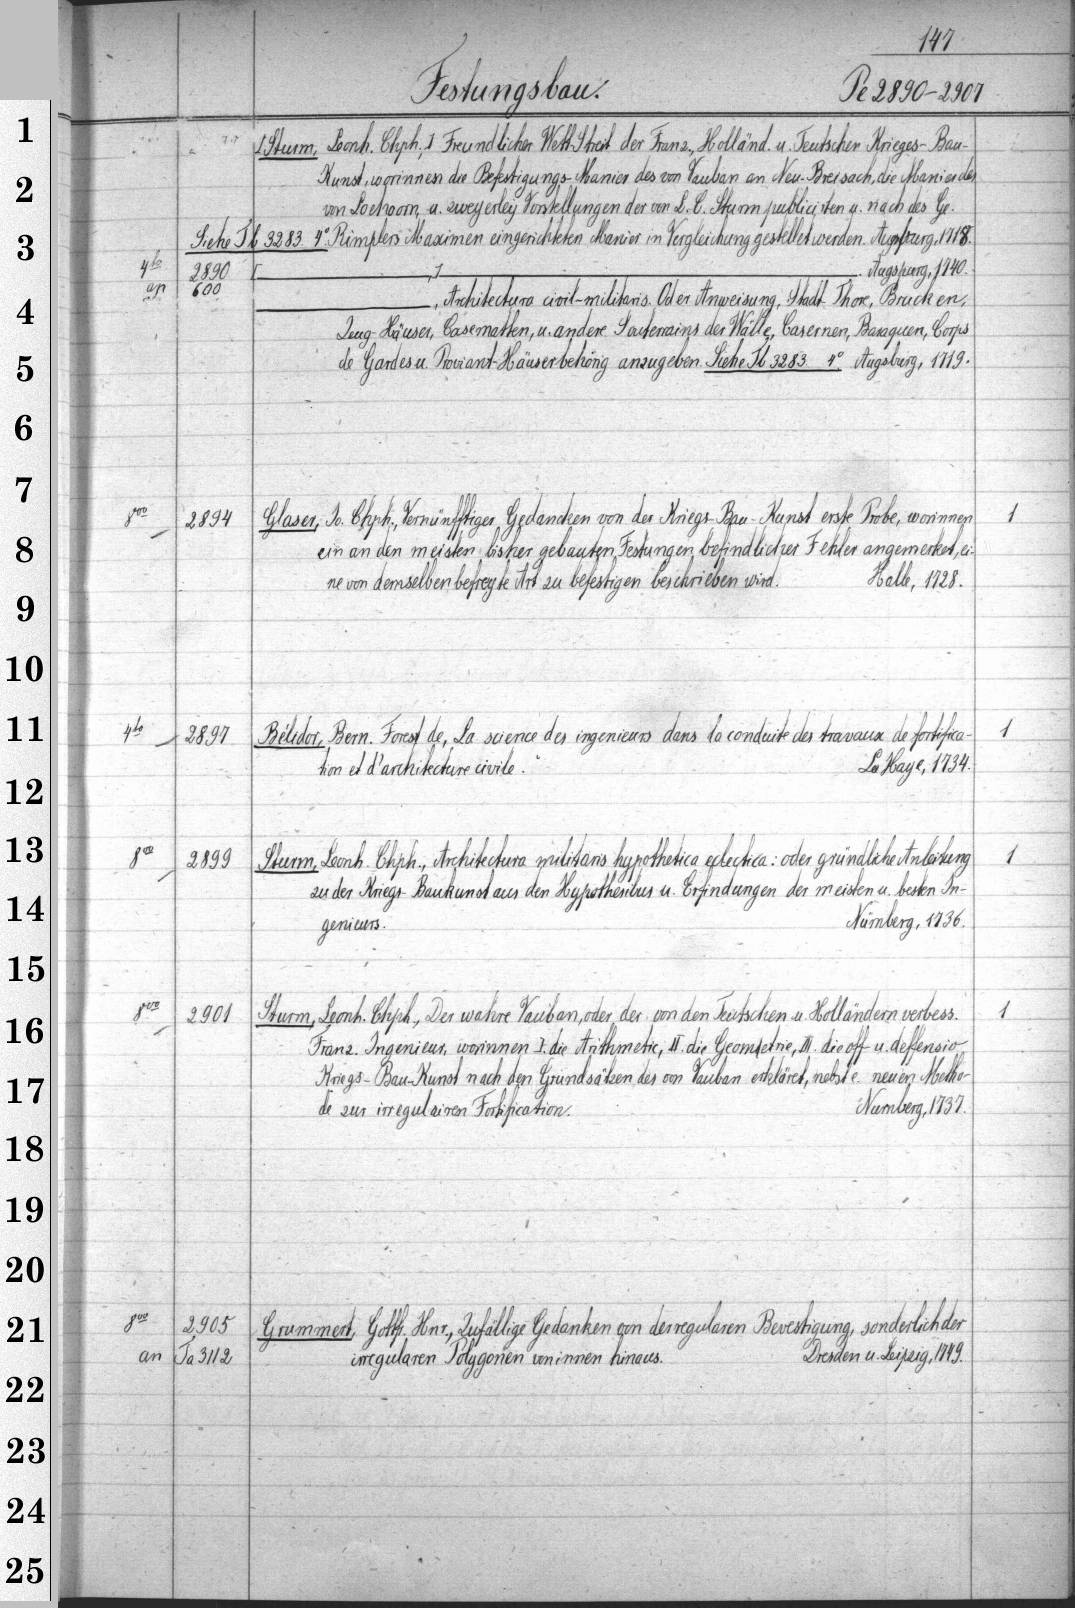 147
Festungsbau. Pe 2890-2907
1
[Sturm, Leonh. Chph.,] Freundlicher Wett-Streit der Franz., Holländ. u. Teutschen Krieges-Bau-
2
Kunst, worinnen die Befestigungs-Manier des von Vauban an Neu-Breisach, die Manier des
von Coehoorn, u. zweyerley Vorstellungen der von L. C. Sturm publicirten u. nach des Ge.
3
Siehe Tb 3283 4° Rimplers Maximen eingerichteten Manier in Vergleichung gestellet werden. Augspurg, 1718.
4to 2890 [ ,] . Augspurg, 1740.
an 600
4
, Architectura civil-militaris. Oder Anweisung, Stadt-Thore, Brucken,
Zeug-Häuser, Casematten, u. andere Souterrains der Wälle, Casernen, Baraquen, Corps
5
de Gardes u. Proviant-Häuser behörig anzugeben. Siehe Tb 3283 4° Augsburg, 1719.
6
7
8vo 2894 Glaser, Jo. Chph., Vernünfftiger Gedancken von der Kriegs-Bau-Kunst erste Probe, worinnen 1
8
ein an den meisten bisher gebauten Festungen befindlicher Fehler angemerket, ei-
ne von demselben befreyte Art zu befestigen beschrieben wird. Halle, 1728.
9
10
11
4to 2897 Bélidor, Bern. Forest de, La science des ingenieurs dans la conduite des travaux de fortifica- 1
tion et d'architecture civile. La Haye, 1734.
12
13
8vo 2899 Sturm, Leonh. Chph., Architectura militaris hypothetica eclectica: oder gründliche Anleitung 1
14
zu der Kriegs-Baukunst aus den Hypothesibus u. Erfindungen der meisten u. besten In-
genieurs. Nürnberg, 1736.
15
16
8vo 2901 Sturm, Leonh. Chph., Der wahre Vauban, oder der von den Teutschen u. Holländern verbess. 1
Franz. Ingenieur, worinnen I. die Arithmetic, II. die Geometrie, III. die off- u. deffensiv-
17
Kriegs-Bau-Kunst nach den Grundsätzen des von Vauban erkläret, nebst e. neuen Metho-
de zur irregulairen Fortification. Nurnberg, 1737.
18
19
20
21
8vo 2905 Grummert, Gottfr. Hnr., Zufällige Gedanken von der regularen Bevestigung, sonderlich der
an Ta 3112 irregularen Polygonen von innen hinaus. Dresden u. Leipzig, 1749.
22
23
24
25